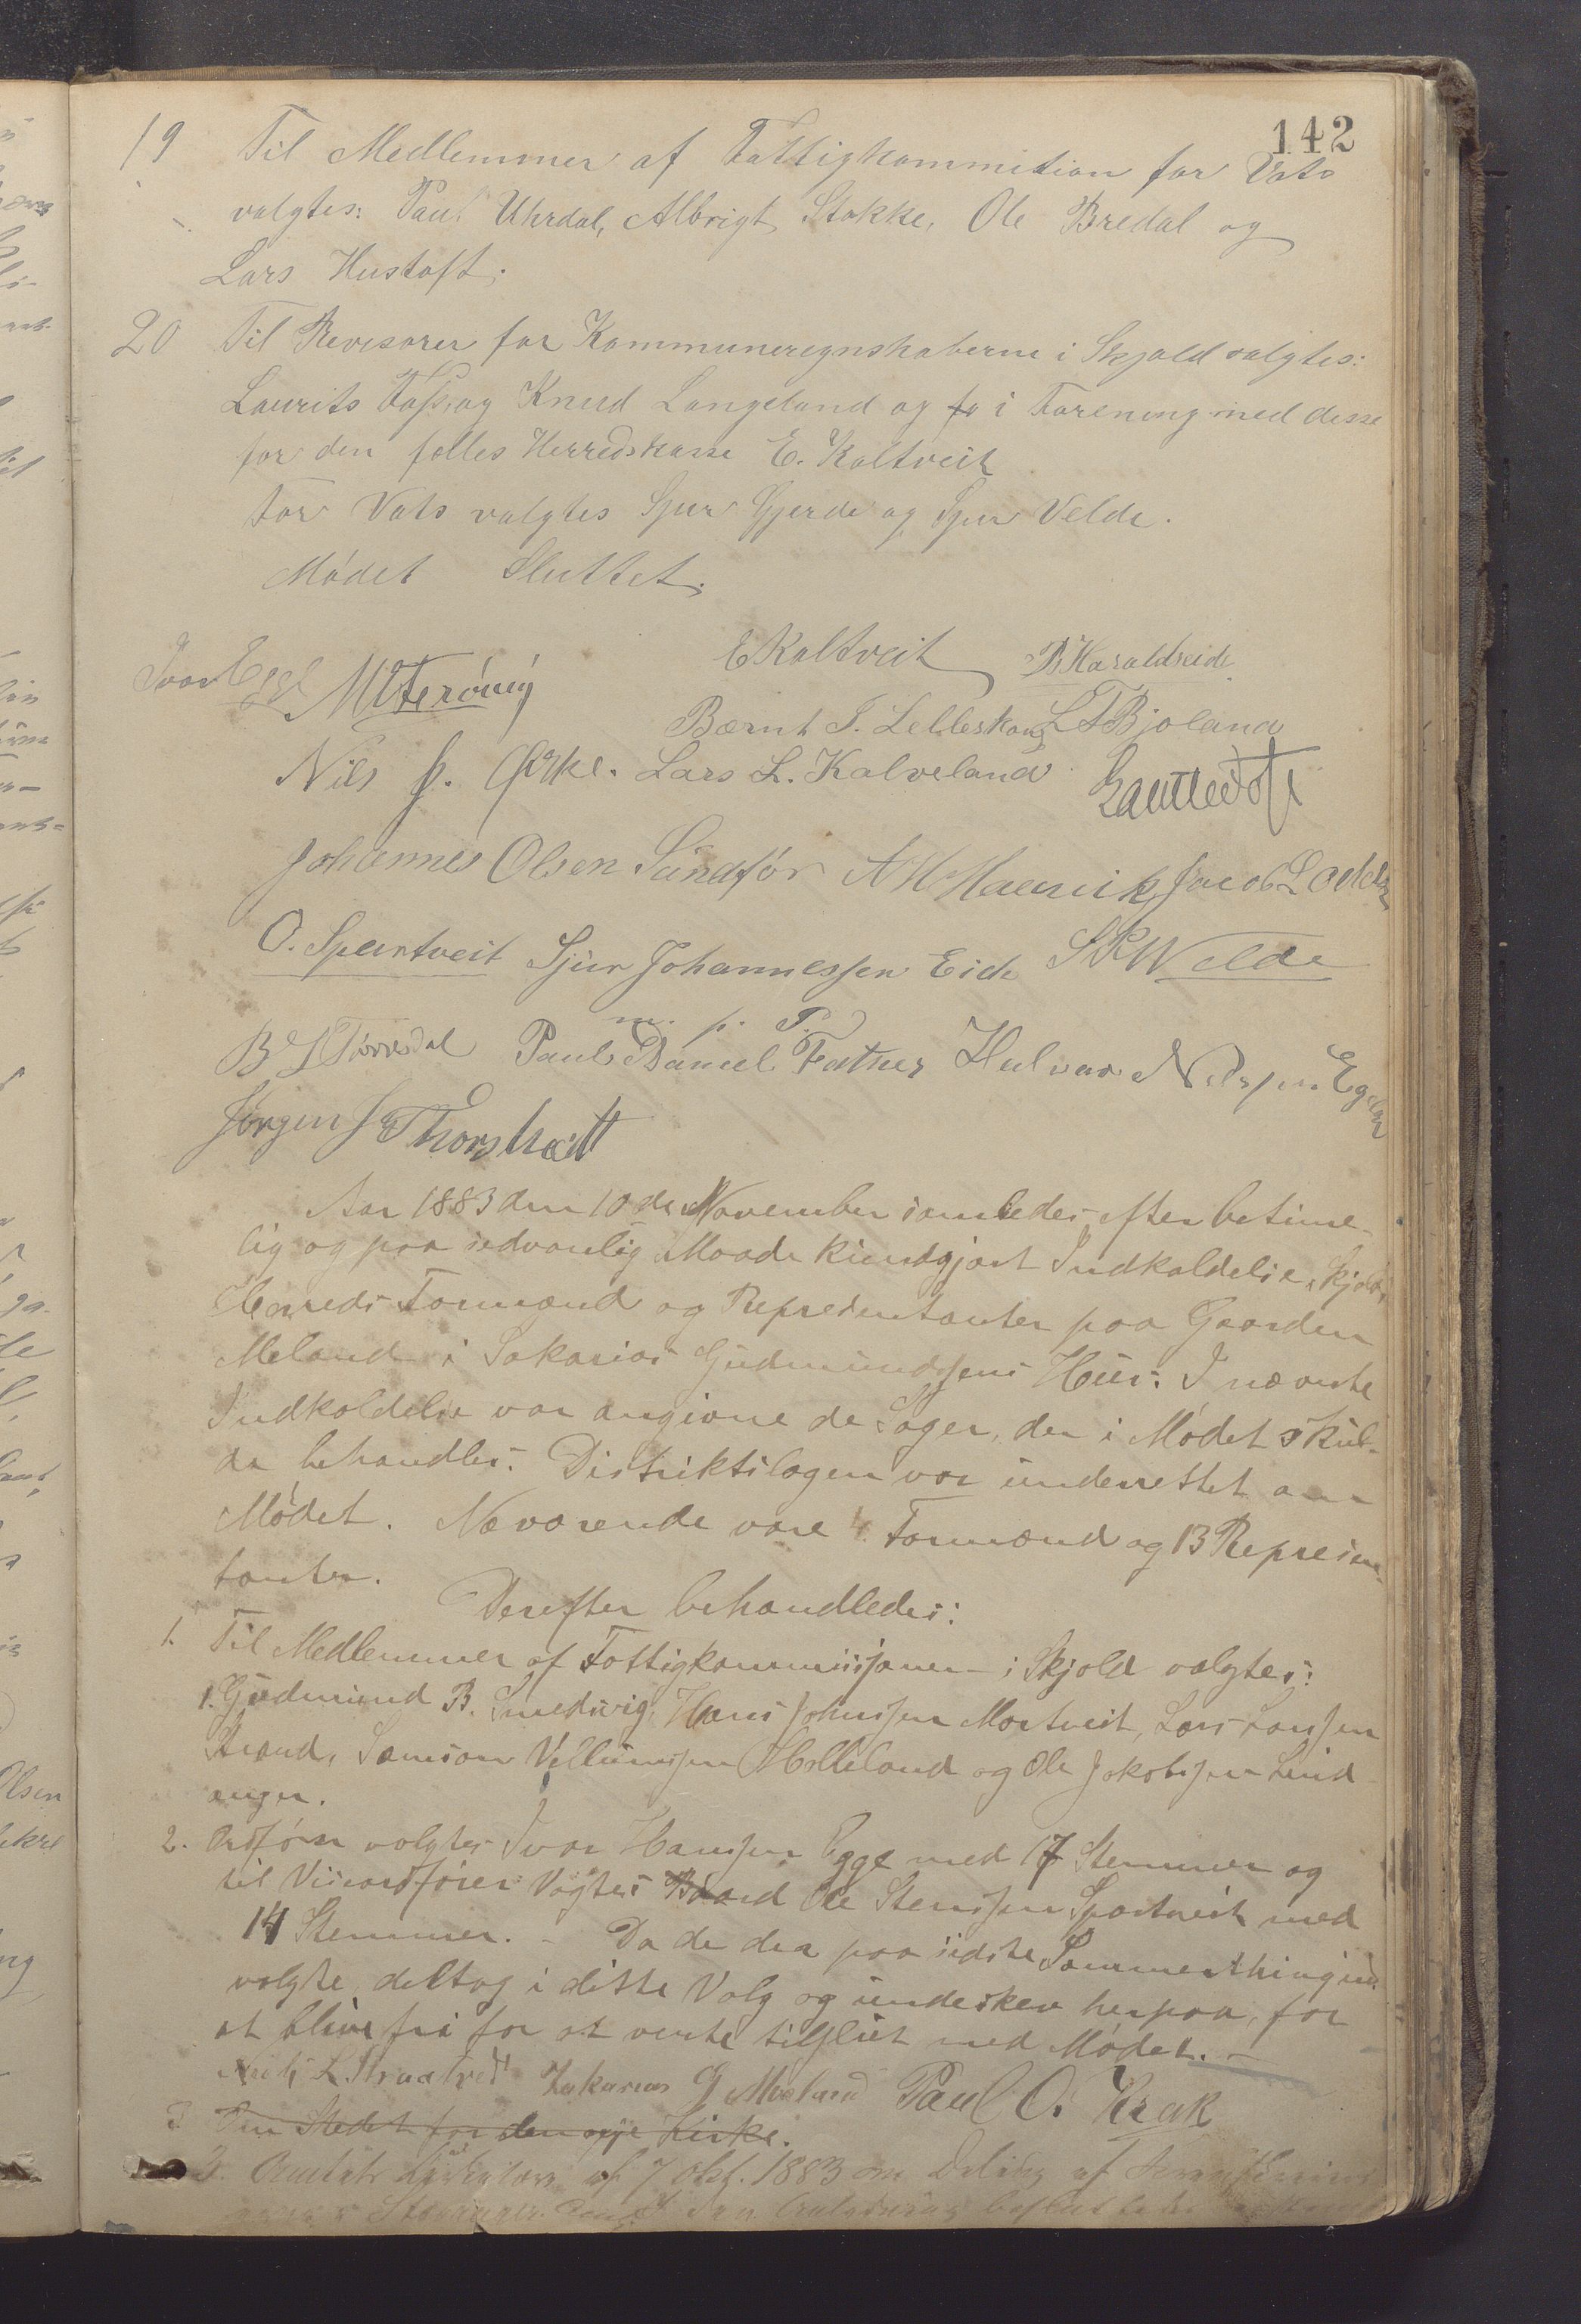 142
19 Til Medlemmer af Fattigkommition for Vats
valgtes: Paul Uhrdal, Albrigt Stakke, Ole Bredal og
Lars Hustoft.
20 Til Revisorer for Kommuneregnskaberne i Skjold valgtes:
Laurits Foss, og Knud Langeland og fo i Forening med disse
for den felles Herredskasse E. Kaltveit
For Vats valgtes Sjur Gjerde og Sjur Velde.
Mödet Sluttet.
Ivar Egge
E Kaltveit B Haraldseid
Bærnt T. Lelleskoug L T Bjoland
Nils J. Lars L. Kalveland
Johannes Olsen Sandför Jacob
O. Spartveit Sjur Johannessen Eide S R Welde
m. p. P.
B Tørresdal Paul Daniel Fatnes Halvar Nilssen
Jörgen Thorstvedt
Aar 1883 den 10de November samledes efter betime-
lig og paa sedvanlig Maade kundgjort Indkaldelse, Skjold
Herreds Formænd og Repræsentanter paa Gaarden
Meland i Sakarias Gudmundsens Huus. I nævnte
Indkaldelse var angivne de Sager, der i Mödet skul-
de behandles. Distriktslægen var underrettet om
Mödet. Nærværende vare Formænd og 13 Represen-
tanter.
Derefter behandledes:
1. Til Medlemmer af Fattigkommissjonen i Skjold valgtes:
1. Gudmund B. Smedsvig, Hans Johnsen Mortveit, Lars Larsen
Strand, Samson Villumsen Helleland og Ole Jakobsen Lind
anger.
2. Ordförer valgtes Ivar Hansen Egge med 17 Stemmer og
til Viseordförer Valgtes Baard Ole Stensen Spartveit med
14 Stemmer. - Da de der paa sidste Sommerthing
valgte, deltog i dette Valg og underskrev herpaa, for
at blive fri for at vente tilslut med Mödet. -
L. Straatveit Zakarias G Mæland Paul O. Krak
3. Om Stedet for den nye Kirke.
3. Amtets af 7 Okt. 1883 om Deling af